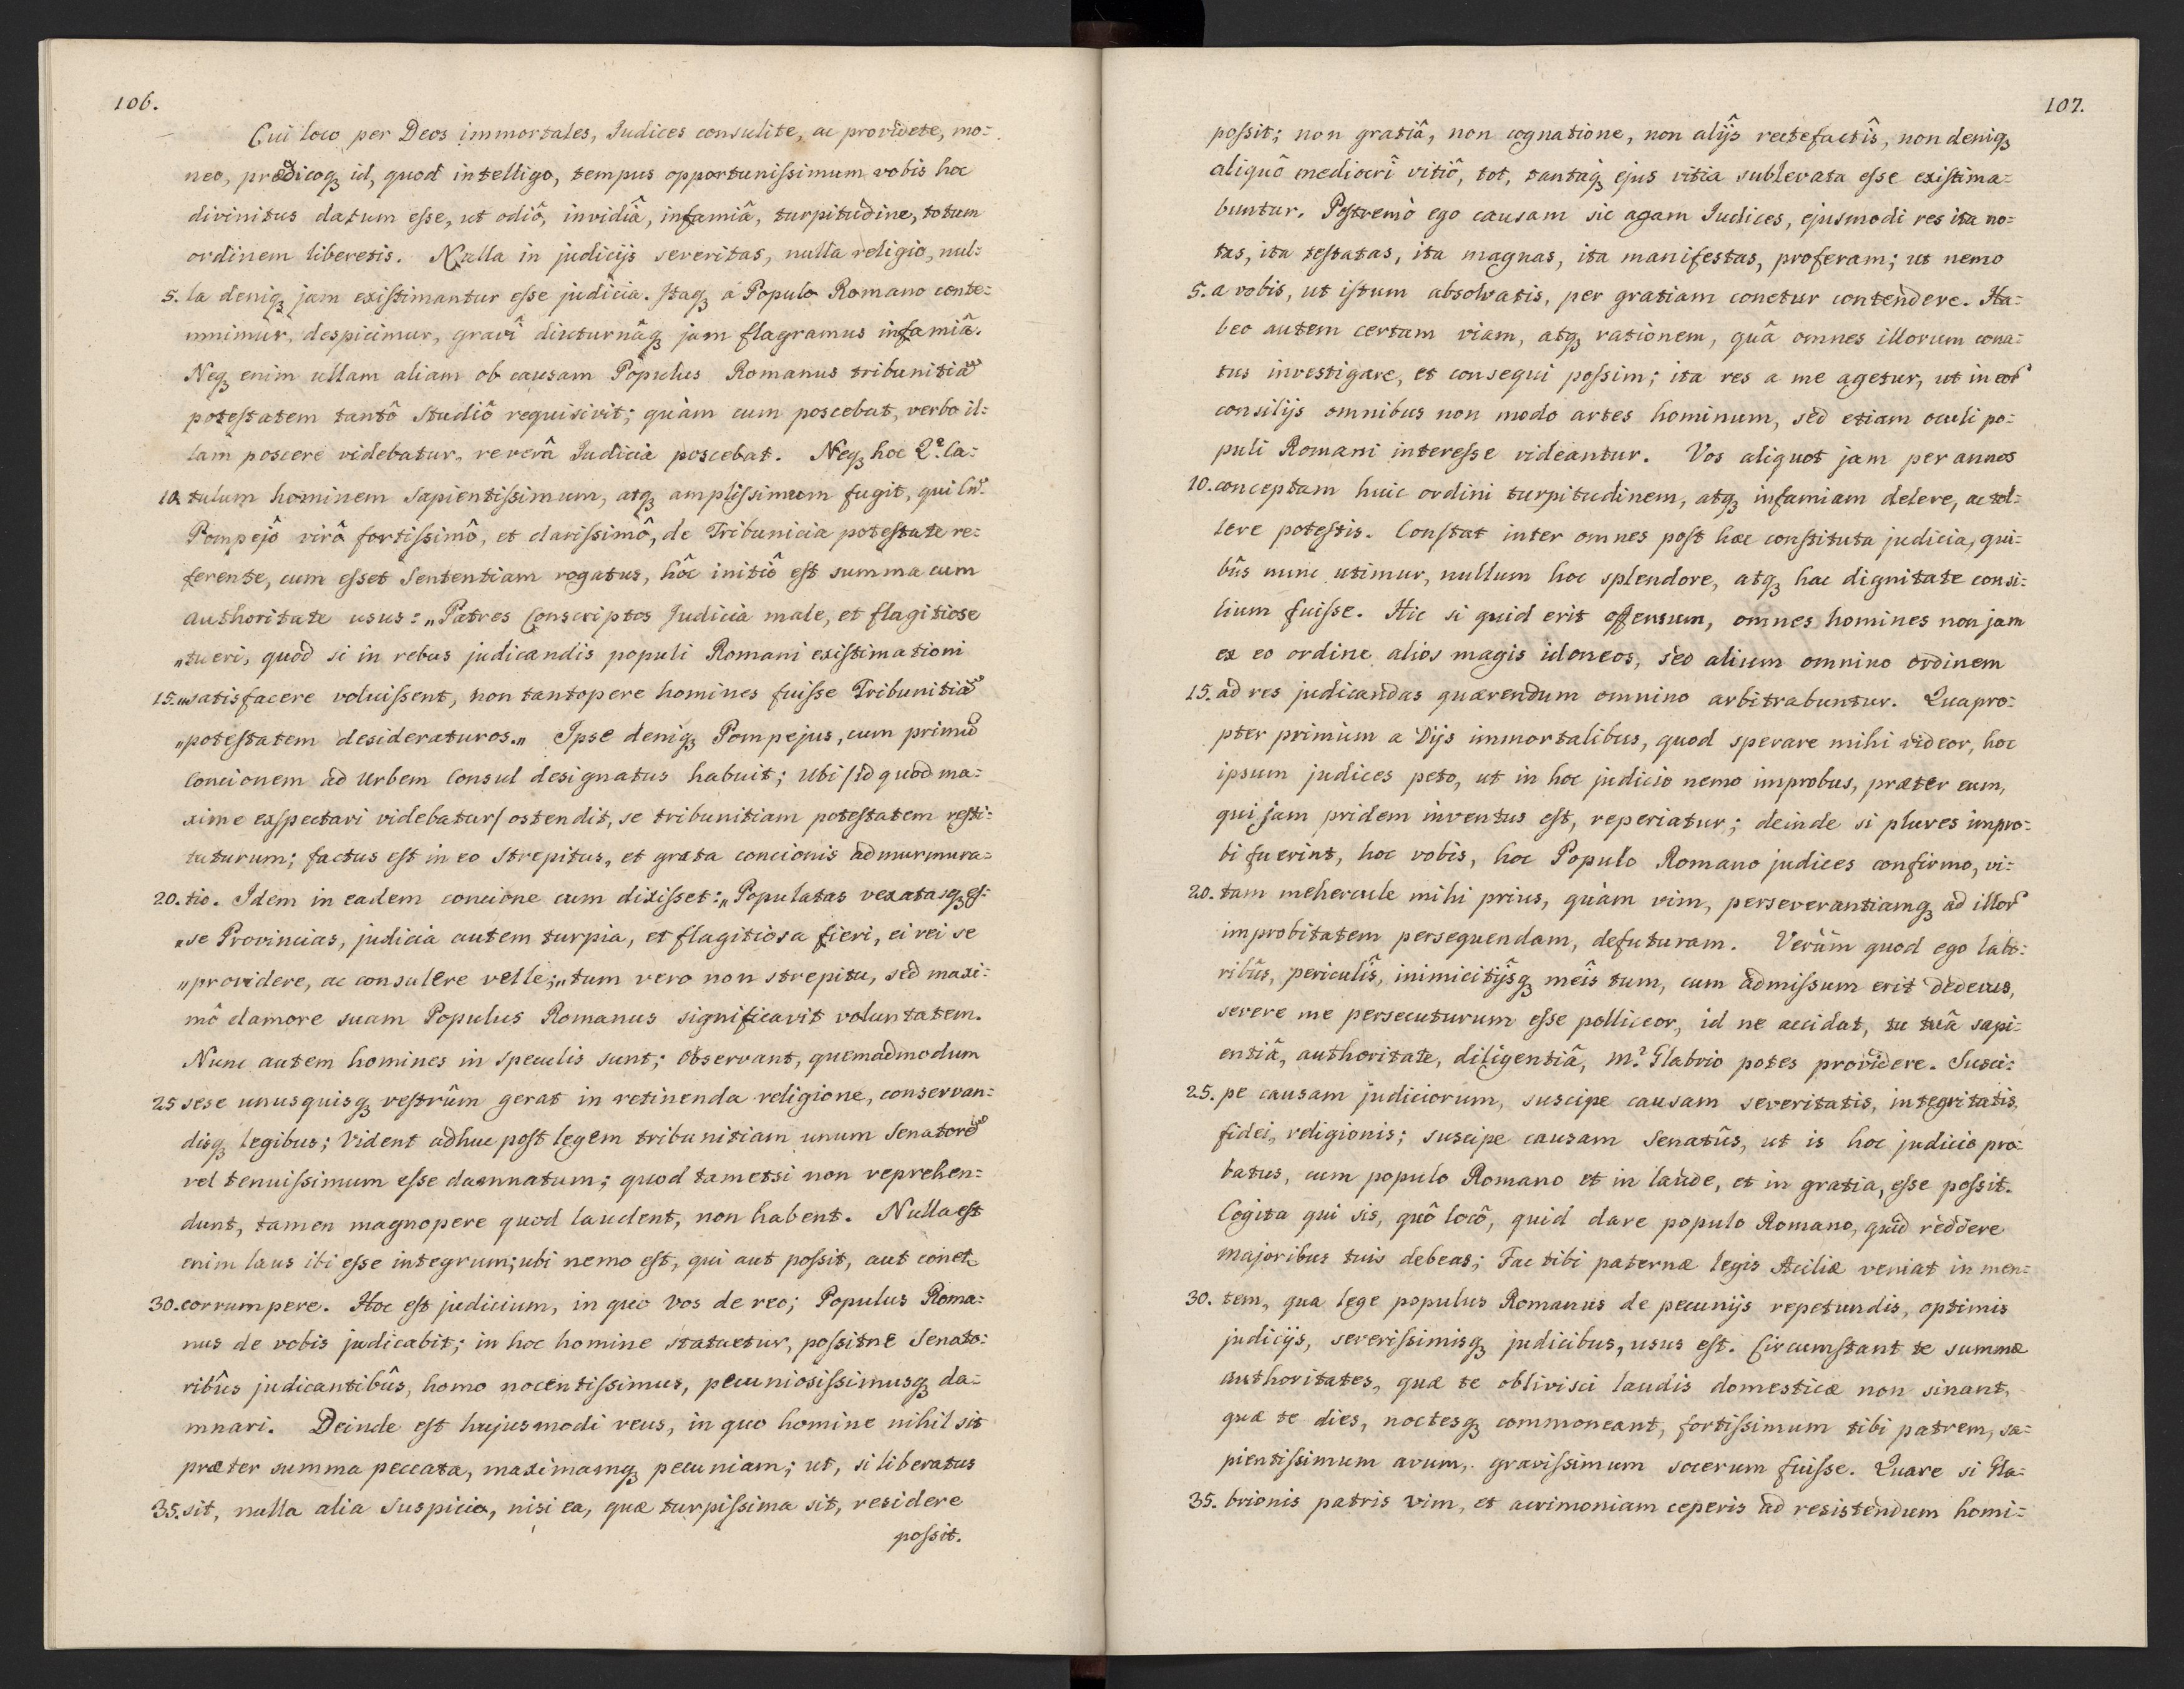 106.
Cui loco per Deos immortales, Judices consulite, ac providete, mo=
neo, prædicoq; id, quod intelligo, tempus opportunissimum vobis hoc
divinitus datum esse, ut odiô, invidiâ, infamiâ, turpitudine, totum
ordinem liberetis. Nulla in judicijs severitas, nulla religio, nul=
5. la deniq; jam existimantur esse judicia. Itaq; a Populo Romano conte=
mnimur, despicimur, gravî diuturnâq; jam flagramus infamiâ.
Neq; enim ullam aliam ob causam Populus Romanus tribunitiã
potestatem tantô studiô requisivit; quàm cum poscebat, verbo il=
lam poscere videbatur, reverâ Judicia poscebat. Neq; hoc Q. Ca=
10. tulum hominem sapientissimum, atq; amplissimum fugit, qui Cn.
Pompejô virô fortissimô, et clarissimô, de Tribunicia potestate re=
ferente, cum esset Sententiam rogatus, hôc initiô est summa cum
authoritate usus: „Patres Conscriptos Judicia male, et flagitiose
„tueri, quòd si in rebus judicandis populi Romani existimationi
15. „satisfacere voluissent, non tantopere homines fuisse Tribunitiã
„potestatem desideraturos.„ Ipse deniq; Pompejus, cum primũ
concionem ad Urbem Consul designatus habuit; Ubi /id quod ma=
xime exspectari videbatur/ ostendit, se tribunitiam potestatem resti=
tuturum; factus est in eo strepitus, et grata concionis admurmura=
20. tio. Idem in eadem concione cum dixisset: „Populatas vexatasq; es=
„se Provincias, judicia autem turpia, et flagitiosa fieri, ei rei se
„providere, ac consulere velle;„ tum vero non strepitu, sed maxi=
mô clamore suam Populus Romanus significavit voluntatem.
Nunc autem homines in speculis sunt; observant, quemadmodum
25 sese unusquisq; vestrûm gerat in retinenda religione, conservan=
disq; legibus; Vident adhuc post legem tribunitiam unum Senatorẽ
vel tenuissimum esse damnatum; quod tametsi non reprehen=
dunt, tamen magnopere quod laudent, non habent. Nulla est
enim laus ibi esse integrum; ubi nemo est, qui aut possit, aut conet
30. corrumpere. Hoc est judicium, in quo vos de reo; Populus Roma=
nus de vobis judicabit; in hoc homine statuetur, possitne Senato=
ribûs judicantibûs, homo nocentissimus, pecuniosissimusq; da=
mnari. Deinde est hujusmodi reus, in quo homine nihil sit
præter summa peccata, maximamq; pecuniam; ut, si liberatus
35. sit, nulla alia suspicio, nisi ea, quæ turpissima sit, residere
possit.
107.
possit; non gratiâ, non cognatione, non alijs rectefactîs, non deniq;
aliquô mediocrî vitiô, tot, tantaq; ejus vitia sublevata esse existima=
buntur. Postremò ego causam sic agam Judices, ejusmodi res ita no=
tas, ita testatas, ita magnas, ita manifestas, proferam; ut nemo
5. a vobis, ut istum absolvatis, per gratiam conetur contendere. Ha=
beo autem certam viam, atq; rationem, quâ omnes illorum cona=
tus investigare, et consequi possim; ita res a me agetur, ut in eor
consilijs omnibus non modo artes hominum, sed etiam oculi po=
puli Romani interesse videantur. Vos aliquot jam per annos
10. conceptam huic ordini turpitudinem, atq; infamiam delere, ac tol=
lere potestis. Constat inter omnes post hæc constituta judicia, qui=
bûs nunc utimur, nullum hoc splendore, atq; hac dignitate consi=
lium fuisse. Hic si quid erit offensum, omnes homines non jam
ex eo ordine alios magis idoneos, sed alium omnino ordinem
15. ad res judicandas quærendum omnino arbitrabuntur. Quapro=
pter primum a Dijs immortalibus, quod sperare mihi videor, hoc
ipsum judices peto, ut in hoc judicio nemo improbus, præter eum,
qui jam pridem inventus est, reperiatur; deinde si plures impro=
bi fuerint, hoc vobis, hoc Populo Romano judices confirmo, vi=
20. tam mehercule mihi prius, quàm vim, perseverantiamq; ad illor
improbitatem persequendam, defuturam. Verùm quod ego labo=
ribûs, periculîs, inimicitijsq; meîs tum, cum admissum erit dedecus,
severe me persecuturum esse polliceor, id ne accidat, tu tuâ sapi=
entiâ, authoritate, diligentiâ, M. Glabrio potes providere. Susci=
25. pe causam judiciorum, suscipe causam severitatis, integritatis,
fidei, religionis; suscipe causam Senatûs, ut is hoc judicio pro=
batus, cum populo Romano et in laude, et in gratia, esse possit.
Cogita qui sis, quô locô, quid dare populo Romano, quid reddere
majoribus tuis debeas; Fac tibi paternæ legis Aciliæ veniat in men=
30. tem, qua lege populus Romanus de pecunijs repetundis, optimis
judicijs, severissimisq; judicibus, usus est. Circumstant te summæ
authoritates, quæ te oblivisci laudis domesticæ non sinant,
quæ te dies, noctesq; commoneant, fortissimum tibi patrem, sa=
pientissimum avum, gravissimum socerum fuisse. Quare si Gla=
35. brionis patris vim, et acrimoniam ceperis ad resistendum homi=